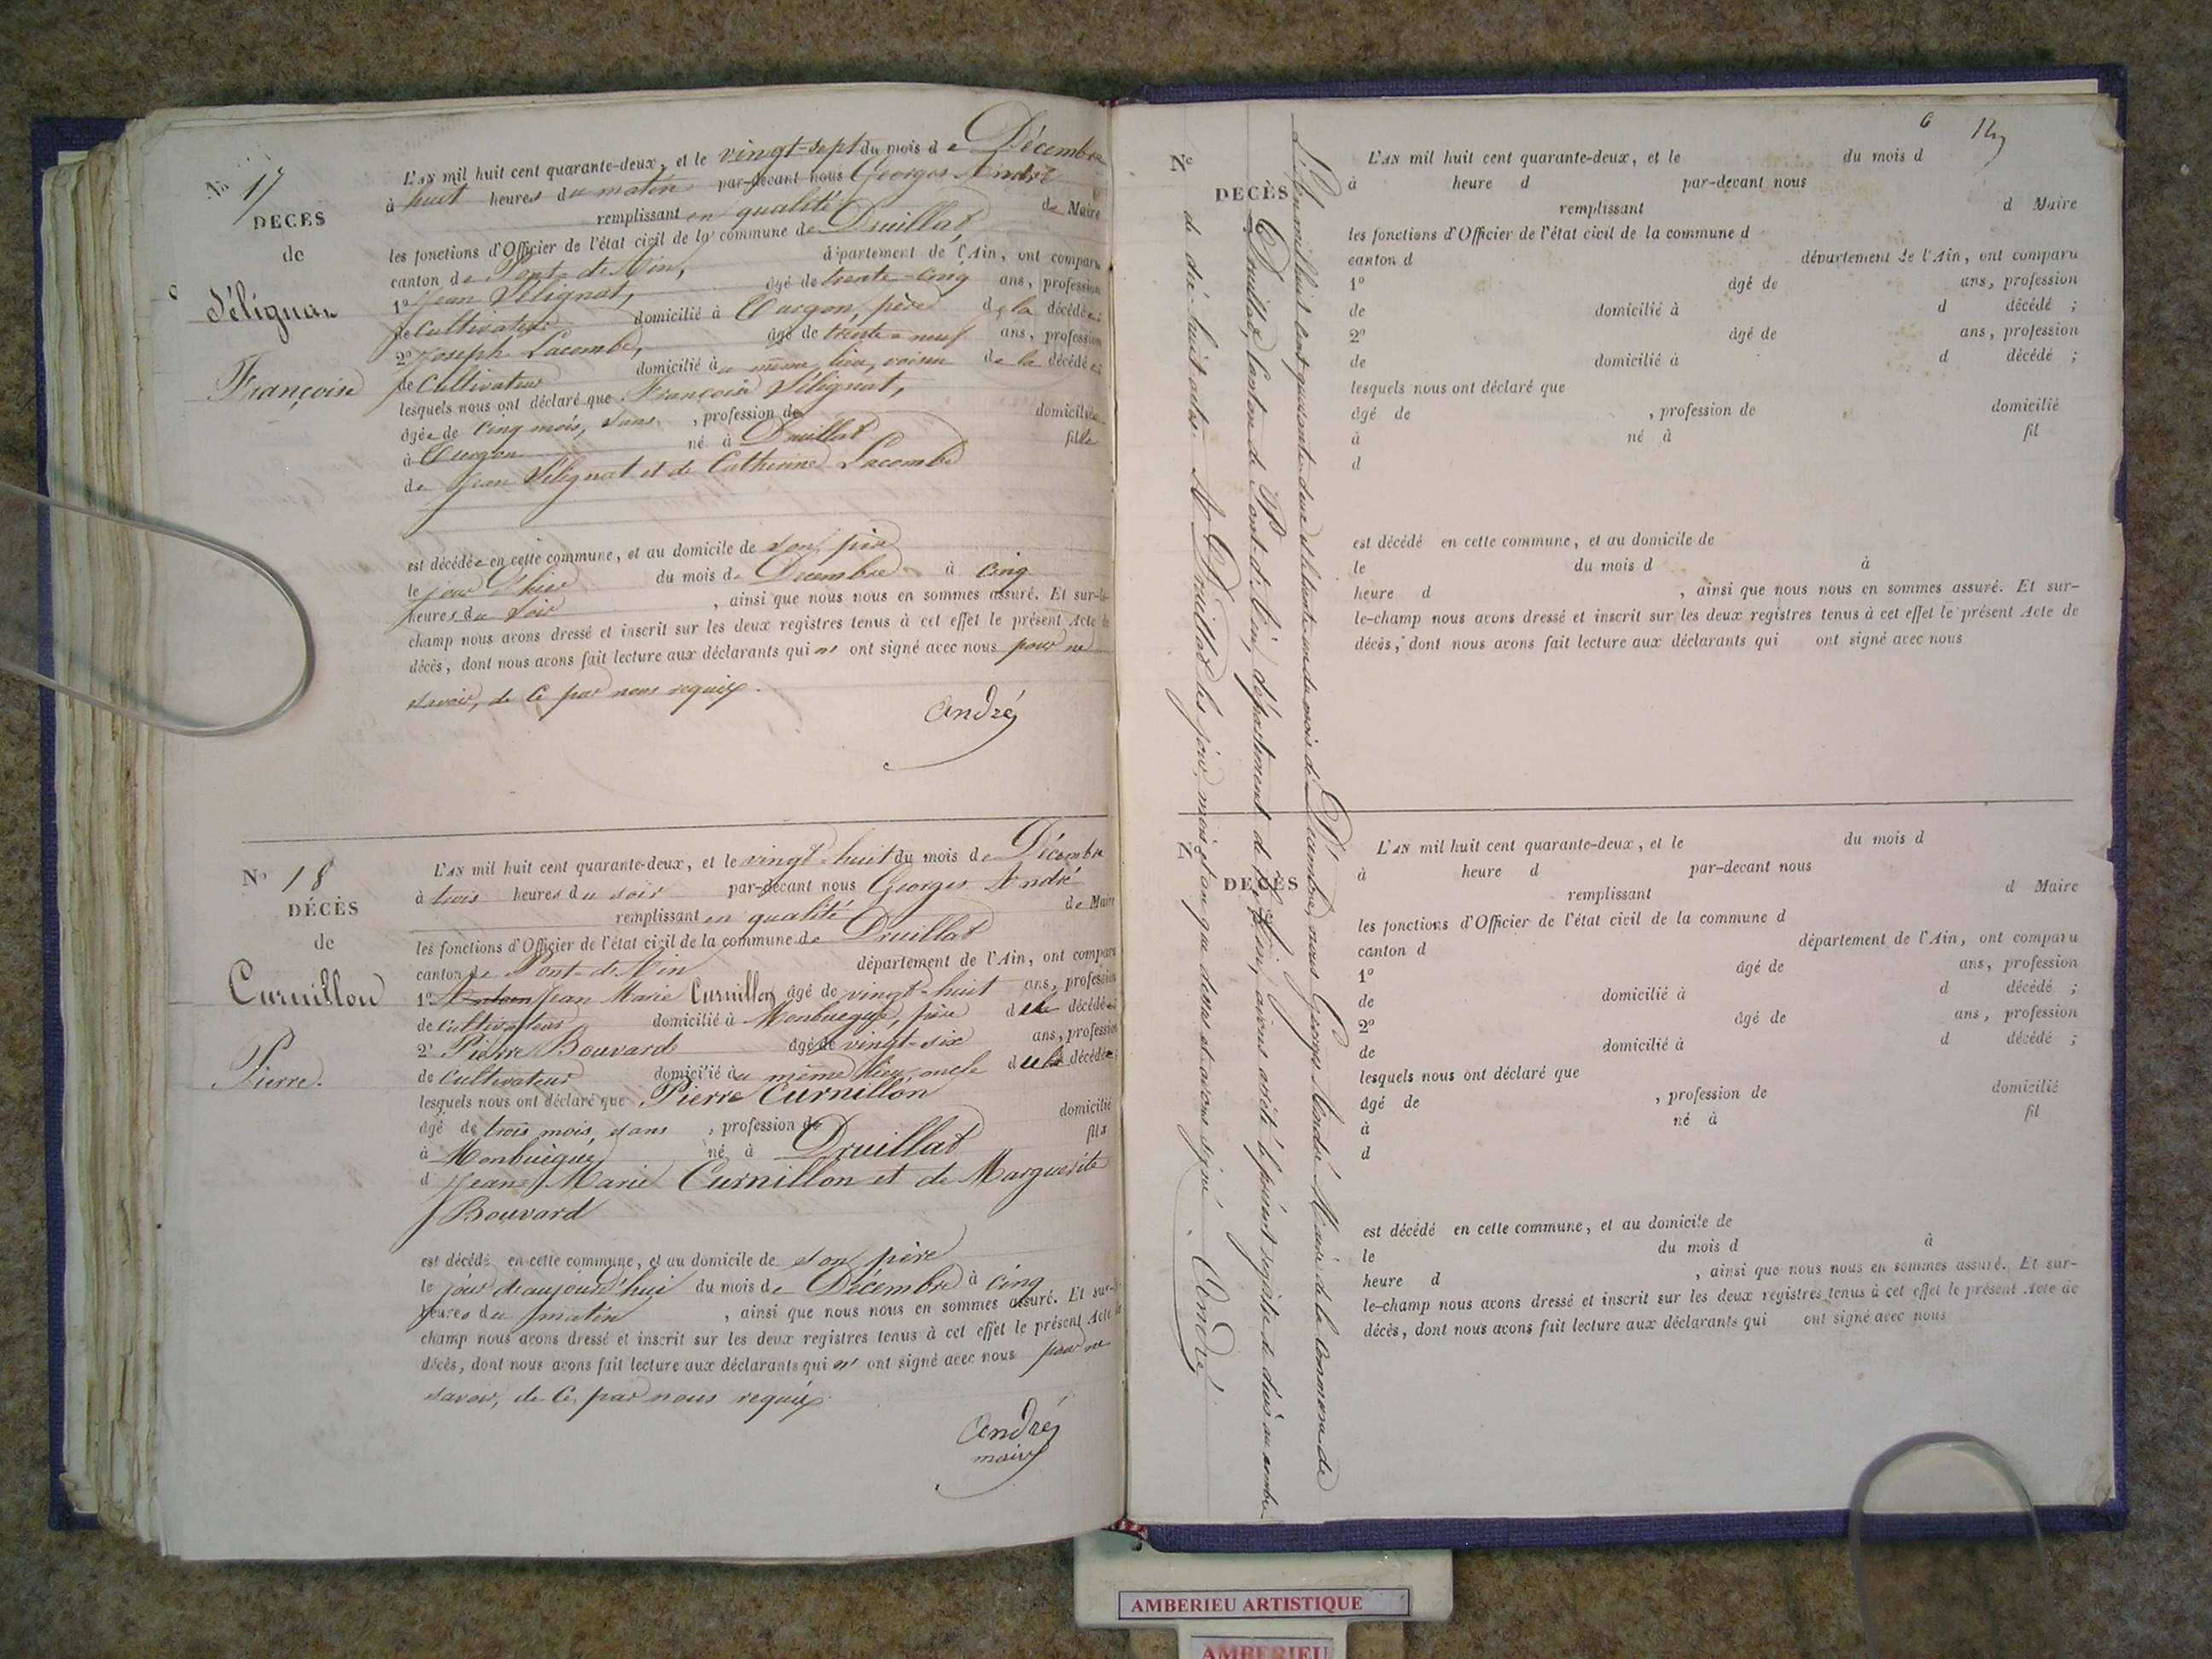 N° 17
DECES
de
Sélignat
Françoise
L'AN mil huit cent quarante-deux, et le vingt-sept du mois de Décembre
à huit heures du matin par-devant nous Georges André
remplissant en qualité de Maire
les fonctions d'Officier de l'état civil de la commune de Druillat
canton de Pont-d'Ain, département de l'Ain, ont comparu
1° Jean Sélignat, âgé de trente-cinq ans, profession
de Cultivateur domicilié à Turgon, père de la décédée;
2° Joseph Lacombe, âgé de trente-neuf ans, profession
de Cultivateur domicilié au même lieu, voisin de la décédée;
lesquels nous ont déclaré que Françoise Sélignat,
âgée de cinq mois, sans , profession de domiciliée
à Turgon né à Druillat fille
de Jean Sélignat et de Catherine Lacombe
est décédée en cette commune, et au domicile de son père
le jour d'hier du mois de Décembre à cinq
heures du soir , ainsi que nous nous en sommes assuré. Et sur-le-
champ nous avons dressé et inscrit sur les deux registres tenus à cet effet le présent Acte de
décès, dont nous avons fait lecture aux déclarants qui n' ont signé avec nous pour ne
savoir, de ce par nous requis.
André
N° 18
DÉCÈS
de
Curnillon
Pierre.
L'AN mil huit cent quarante-deux, et le vingt-huit du mois de Décembre
à trois heures du soir par-devant nous Georges André
remplissant en qualité de Maire
les fonctions d'Officier de l'état civil de la commune de Druillat
canton de Pont-d'Ain département de l'Ain, ont comparu
1° Jean Marie Curnillon âgé de vingt-huit ans, profession
de cultivateur domicilié à Monbuègue, père du décédé;
2° Pierre Bouvard âgé de vingt-six ans, profession
de Cultivateur domicilié au même lieu, oncle du décédé;
lesquels nous ont déclaré que Pierre Curnillon
âgé de trois mois, sans , profession de domicilié
à Monbuègue né à Druillat fils
d Jean Marie Curnillon et de Marguerite
Bouvard
est décédé en cette commune, et au domicile de son père
le jour d'aujourd'hui du mois de Décembre à cinq
heures du matin , ainsi que nous nous en sommes assuré. Et sur-le-
champ nous avons dressé et inscrit sur les deux registres tenus à cet effet le présent Acte de
décès, dont nous avons fait lecture aux déclarants qui n' ont signé avec nous pour ne
savoir, de ce par nous requis.
André
maire
L'an mil huit cent quarante-deux et le trente-un du mois de Décembre, nous Georges André Maire de la Commune de
Druillat, Canton de Pont-d'Ain, département de l'Ain, avons arrêté le présent registre de décès au nombre
de dix-huit actes. A Druillat les jour, mois et an que dessus et avons signé. André
6
N°
DECÈS
L'AN mil huit cent quarante-deux, et le du mois d
à heure d par-devant nous
remplissant d Maire
les fonctions d'Officier de l'état civil de la commune d
canton d département de l'Ain, ont comparu
1° âgé de ans, profession
de domicilié à d décédé ;
2° âgé de ans, profession
de domicilié à d décédé ;
lesquels nous ont déclaré que
âgé de , profession de domicilié
à né à fil
d
est décédé en cette commune, et au domicile de
le du mois d à
heure d , ainsi que nous nous en sommes assuré. Et sur-
le-champ nous avons dressé et inscrit sur les deux registres tenus à cet effet le présent Acte de
décès, dont nous avons fait lecture aux déclarants qui ont signé avec nous
N°
DECÈS
L'AN mil huit cent quarante-deux, et le du mois d
à heure d par-devant nous
remplissant d Maire
les fonctions d'Officier de l'état civil de la commune d
canton d département de l'Ain, ont comparu
1° âgé de ans, profession
de domicilié à d décédé ;
2° âgé de ans, profession
de domicilié à d décédé ;
lesquels nous ont déclaré que
âgé de , profession de domicilié
à né à fil
d
est décédé en cette commune, et au domicile de
le du mois d à
heure d , ainsi que nous nous en sommes assuré. Et sur-
le-champ nous avons dressé et inscrit sur les deux registres tenus à cet effet le présent Acte de
décès, dont nous avons fait lecture aux déclarants qui ont signé avec nous
AMBERIEU ARTISTIQUE
AMBERIEU